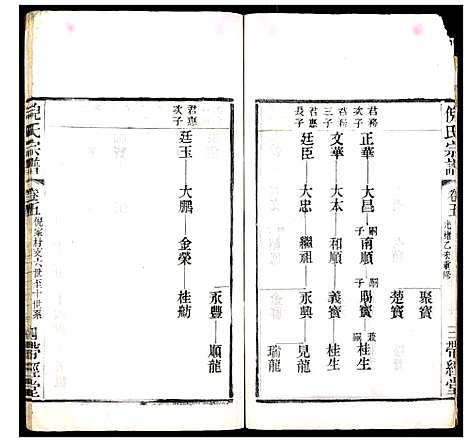 倪氏宗譜
卷五
三
帶經堂
聚寶
楚寶
君務
次子
正華
大昌
嗣子
南順
嗣子
賜寶
兼嗣
桂生
君務
三子
文華
大本
和順
義寶
桂生
君惠
長子
廷臣
大忠
繼祖
永興
見龍
瑞龍
君惠
次子
廷玉
大鵬
金榮
桂舫
永豐
順龍
倪氏宗譜
卷五
倪家村支六世至十世系
四
帶經堂